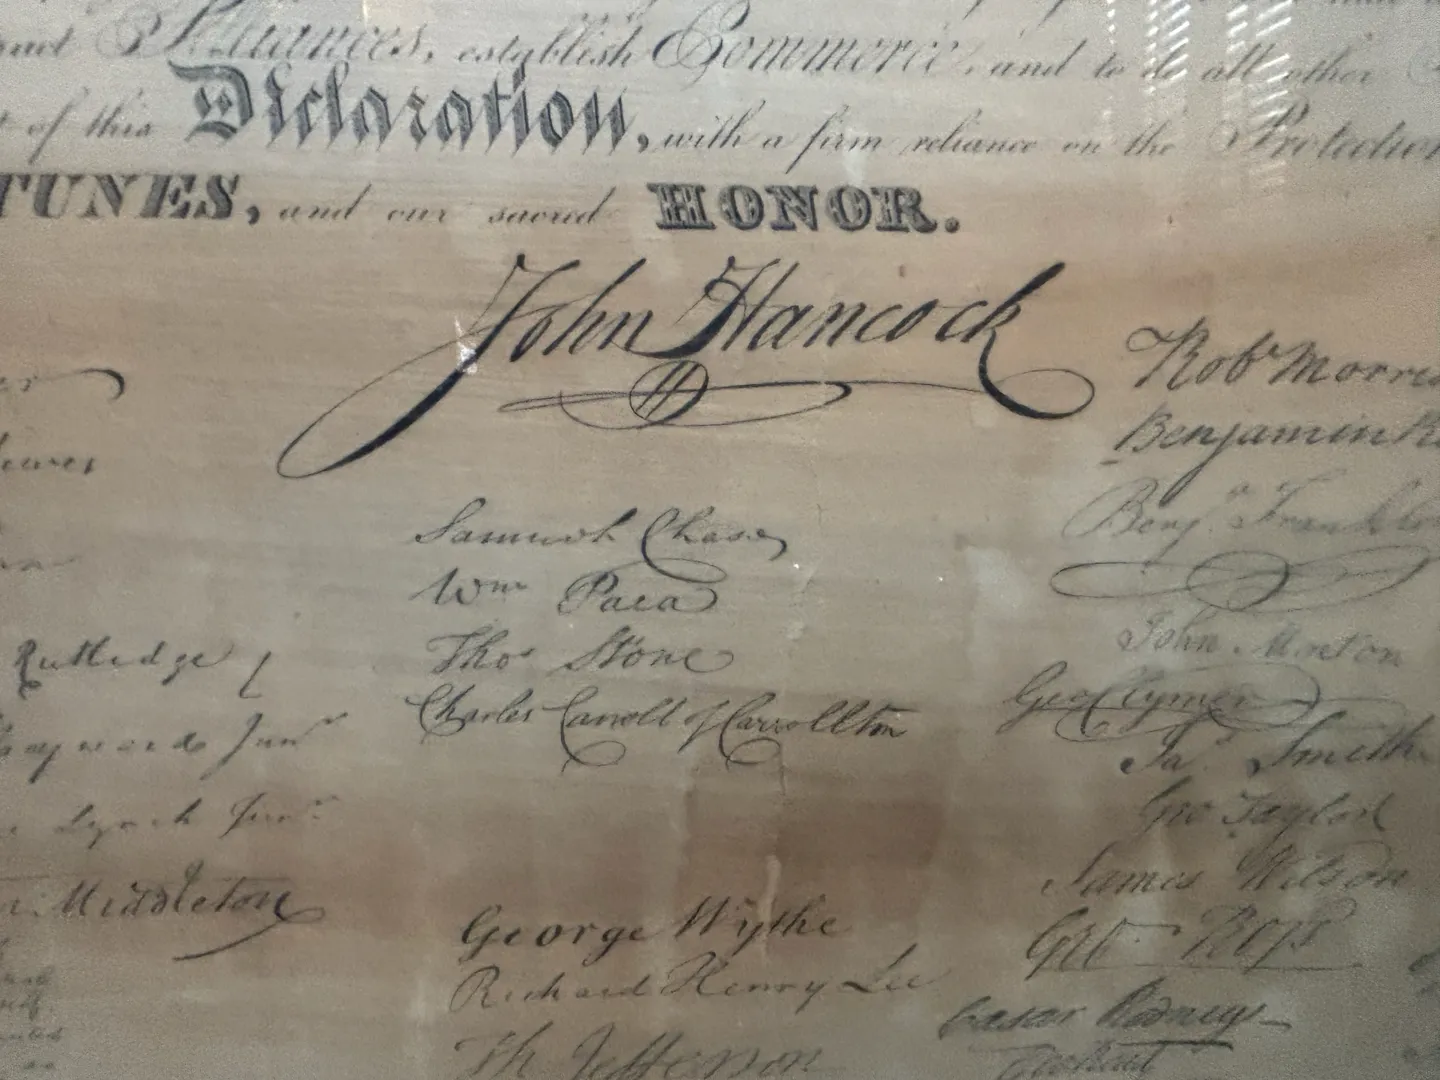 Alliances, establish Commerce, and to do all other
of this Declaration, with a firm reliance on the Protection
TUNES, and our sacred HONOR.
John Hancock
Robt Morris
Benjamin R
Benja. Franklin
Samuel Chase
Wm Paca
Thos Stone
Charles Carroll of Carrollton
John Morton
Geo Clymer
Jas. Smith
Geo Taylor
James Wilson
Geo. Ross
Caesar Rodney
Rutledge /
Heyward Junr
Lynch Junr.
Middleton
George Wythe
Richard Henry Lee
Th Jefferson